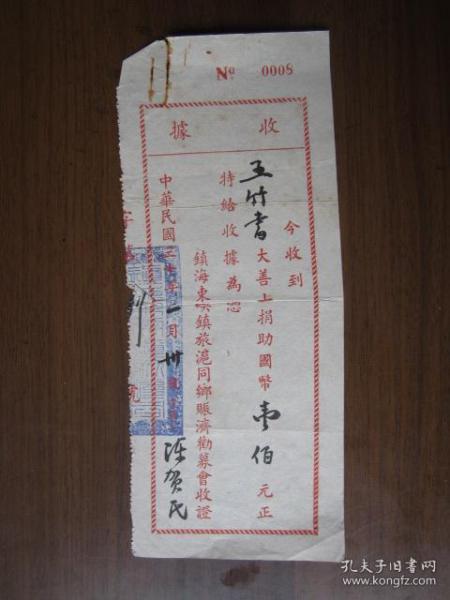 Nº 0008
收據
今收到
王竹書大善士捐助國幣壹佰元正
特給收據為憑
鎮海東 鎮旅滬同鄉賑濟勸募會收證
中華民國三 年一月卅 日 陳賀民
字
號
孔夫子旧书网
www.kongfz.com